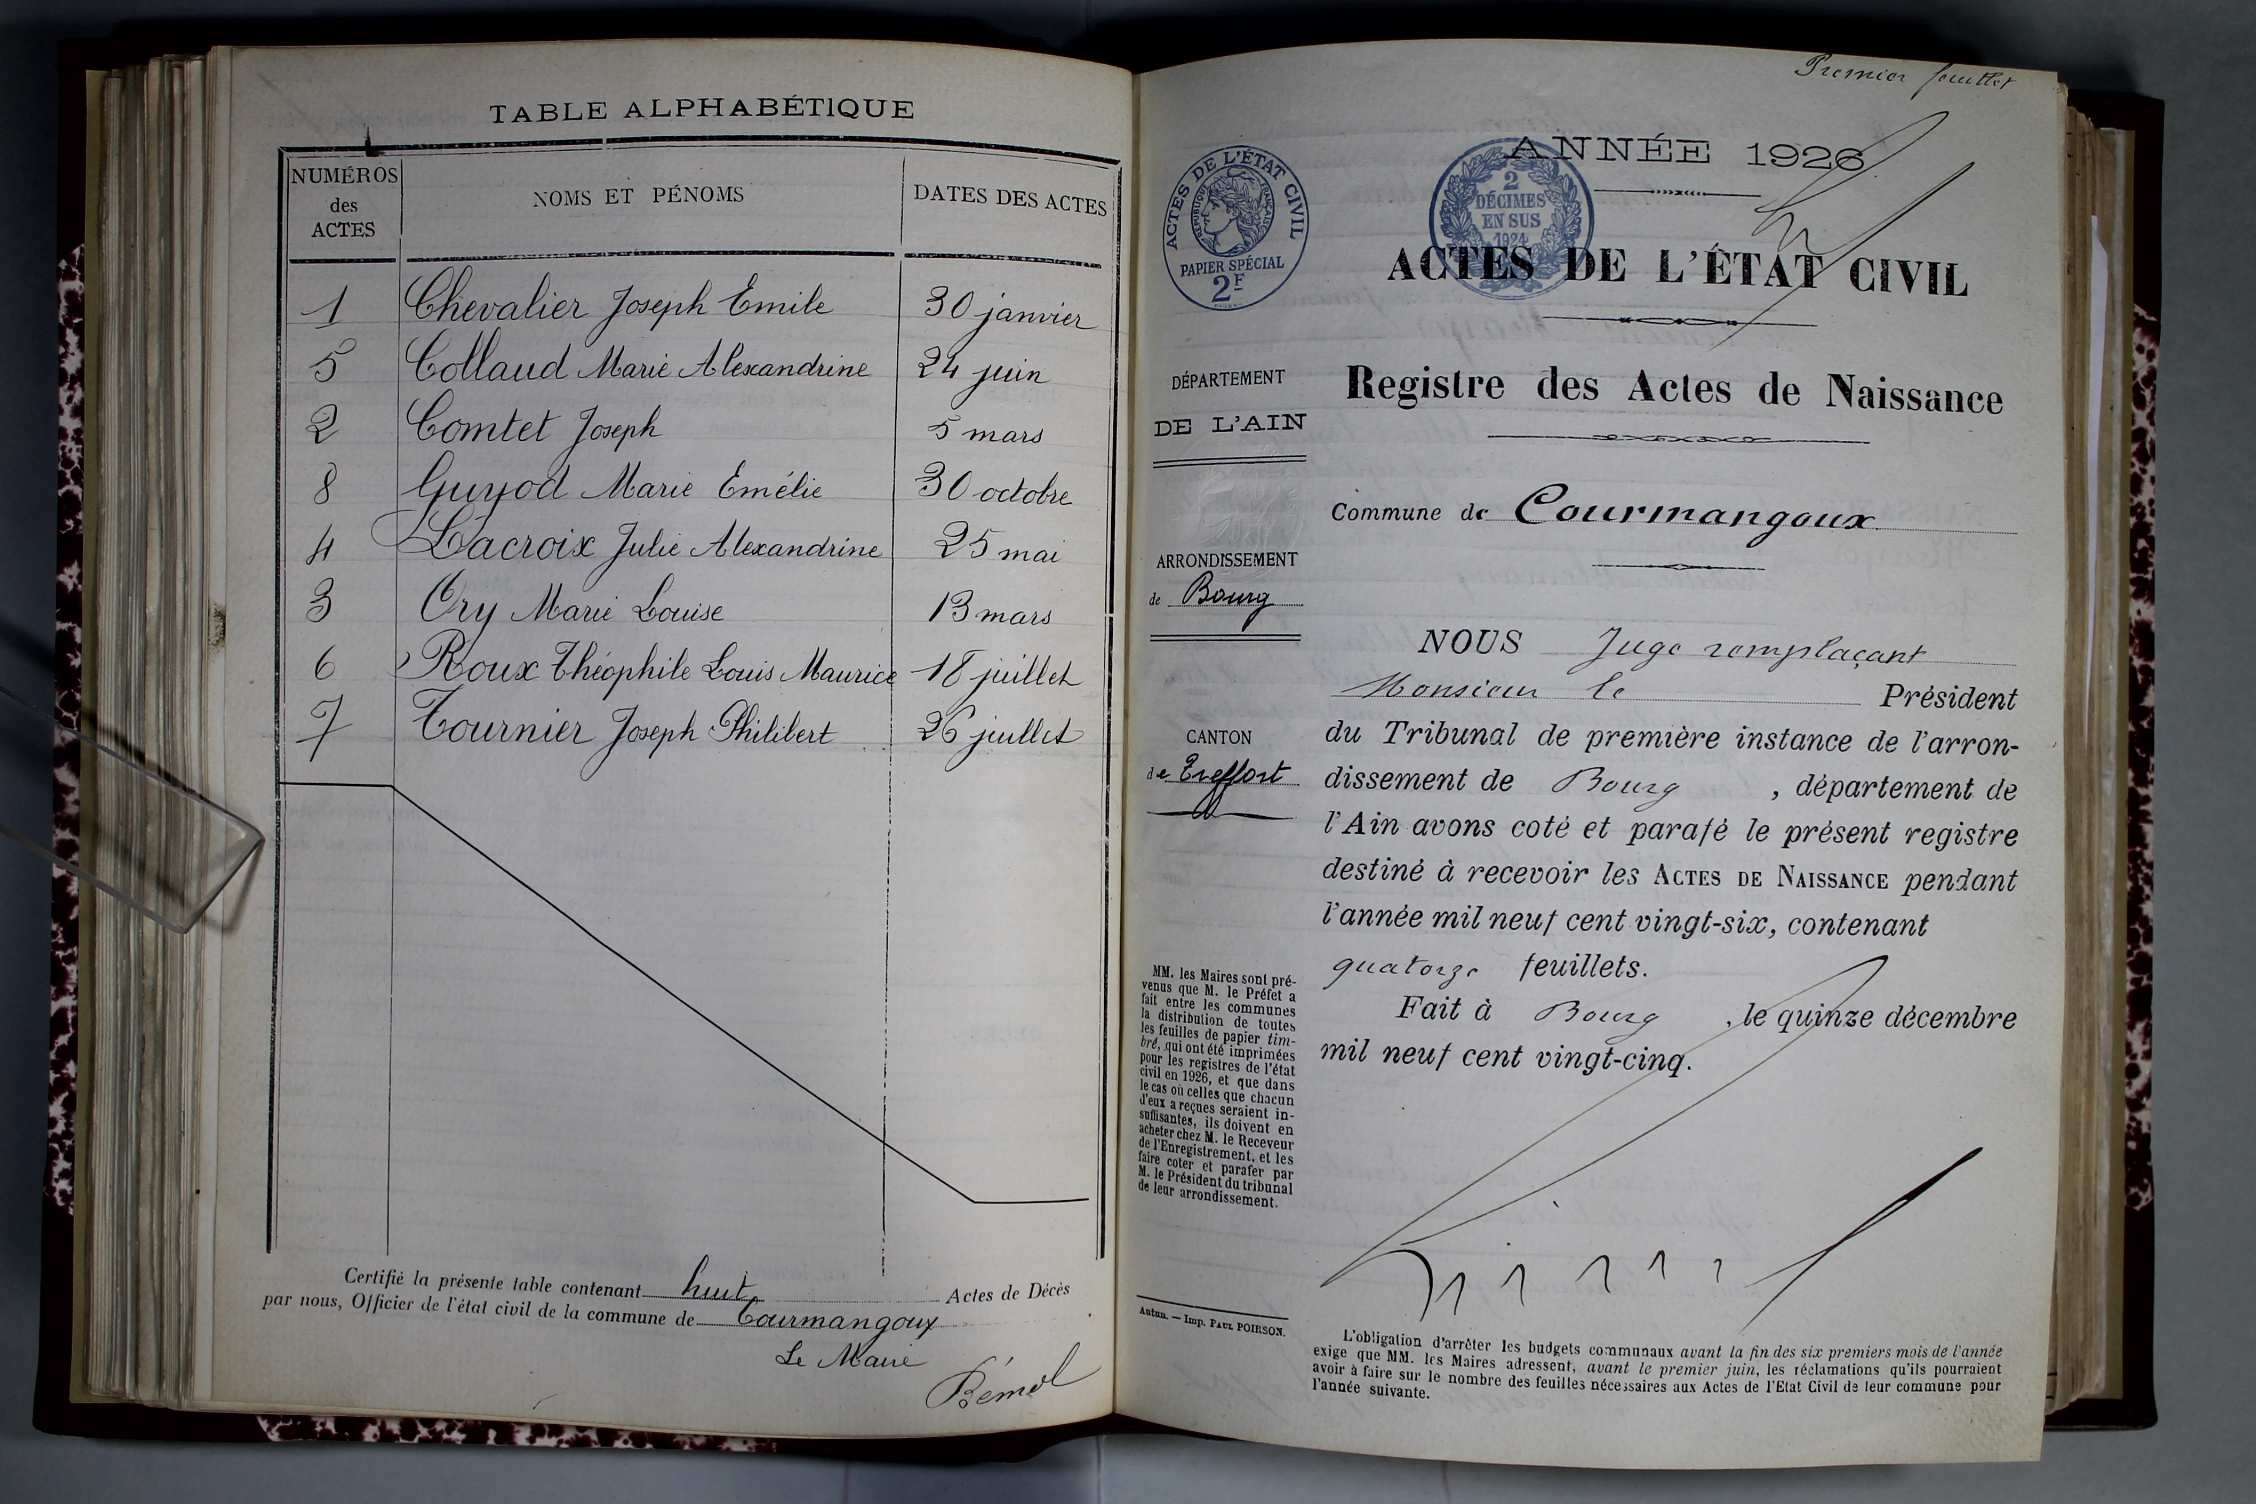 TABLE ALPHABÉTIQUE
NUMÉROS des ACTES NOMS ET PÉNOMS DATES DES ACTES
1 Chevalier Joseph Emile 30 janvier
5 Collaud Marie Alexandrine 24 juin
2 Comtet Joseph 5 mars
8 Guyod Marie Emélie 30 octobre
4 Lacroix Julie Alexandrine 25 mai
3 Ory Marie Louise 13 mars
6 Roux Théophile Louis Maurice 18 juillet
7 Tournier Joseph Philibert 26 juillet
Certifié la présente table contenant huit Actes de Décès
par nous, Officier de l'état civil de la commune de Courmangoux
Le Maire
Premier feuillet
ANNÉE 1926
ACTES DE L'ÉTAT CIVIL
RÉPUBLIQUE FRANÇAISE
PAPIER SPÉCIAL
2F
2
DÉCIMES
EN SUS
1924
ACTES DE L'ÉTAT CIVIL
Registre des Actes de Naissance
DÉPARTEMENT
DE L'AIN
Commune de Courmangoux
ARRONDISSEMENT
de Bourg
CANTON
de Treffort
NOUS Juge remplaçant
Monsieur le Président
du Tribunal de première instance de l'arron-
dissement de Bourg, département de
l'Ain avons coté et parafé le présent registre
destiné à recevoir les ACTES DE NAISSANCE pendant
l'année mil neuf cent vingt-six, contenant
quatorze feuillets.
Fait à Bourg, le quinze décembre
mil neuf cent vingt-cinq.
MM. les Maires sont pré-
venus que M. le Préfet a
fait entre les communes
la distribution de toutes
les feuilles de papier tim-
bré, qui ont été imprimées
pour les registres de l'état
civil en 1926, et que dans
le cas où celles que chacun
d'eux a reçues seraient in-
suffisantes, ils doivent en
acheter chez M. le Receveur
de l'Enregistrement, et les
faire coter et parafer par
M. le Président du tribunal
de leur arrondissement.
Autun. — Imp. PAUL POIRSON.
L'obligation d'arrêter les budgets communaux avant la fin des six premiers mois de l'année
exige que MM. les Maires adressent, avant le premier juin, les réclamations qu'ils pourraient
avoir à faire sur le nombre des feuilles nécessaires aux Actes de l'Etat Civil de leur commune pour
l'année suivante.